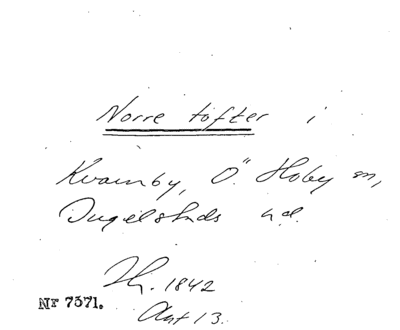 Norre tofter i
Kvarnby, Ö. Hoby sn,
Ingelstads hd.
Th. 1842
Akt 13.
Nr 7371.